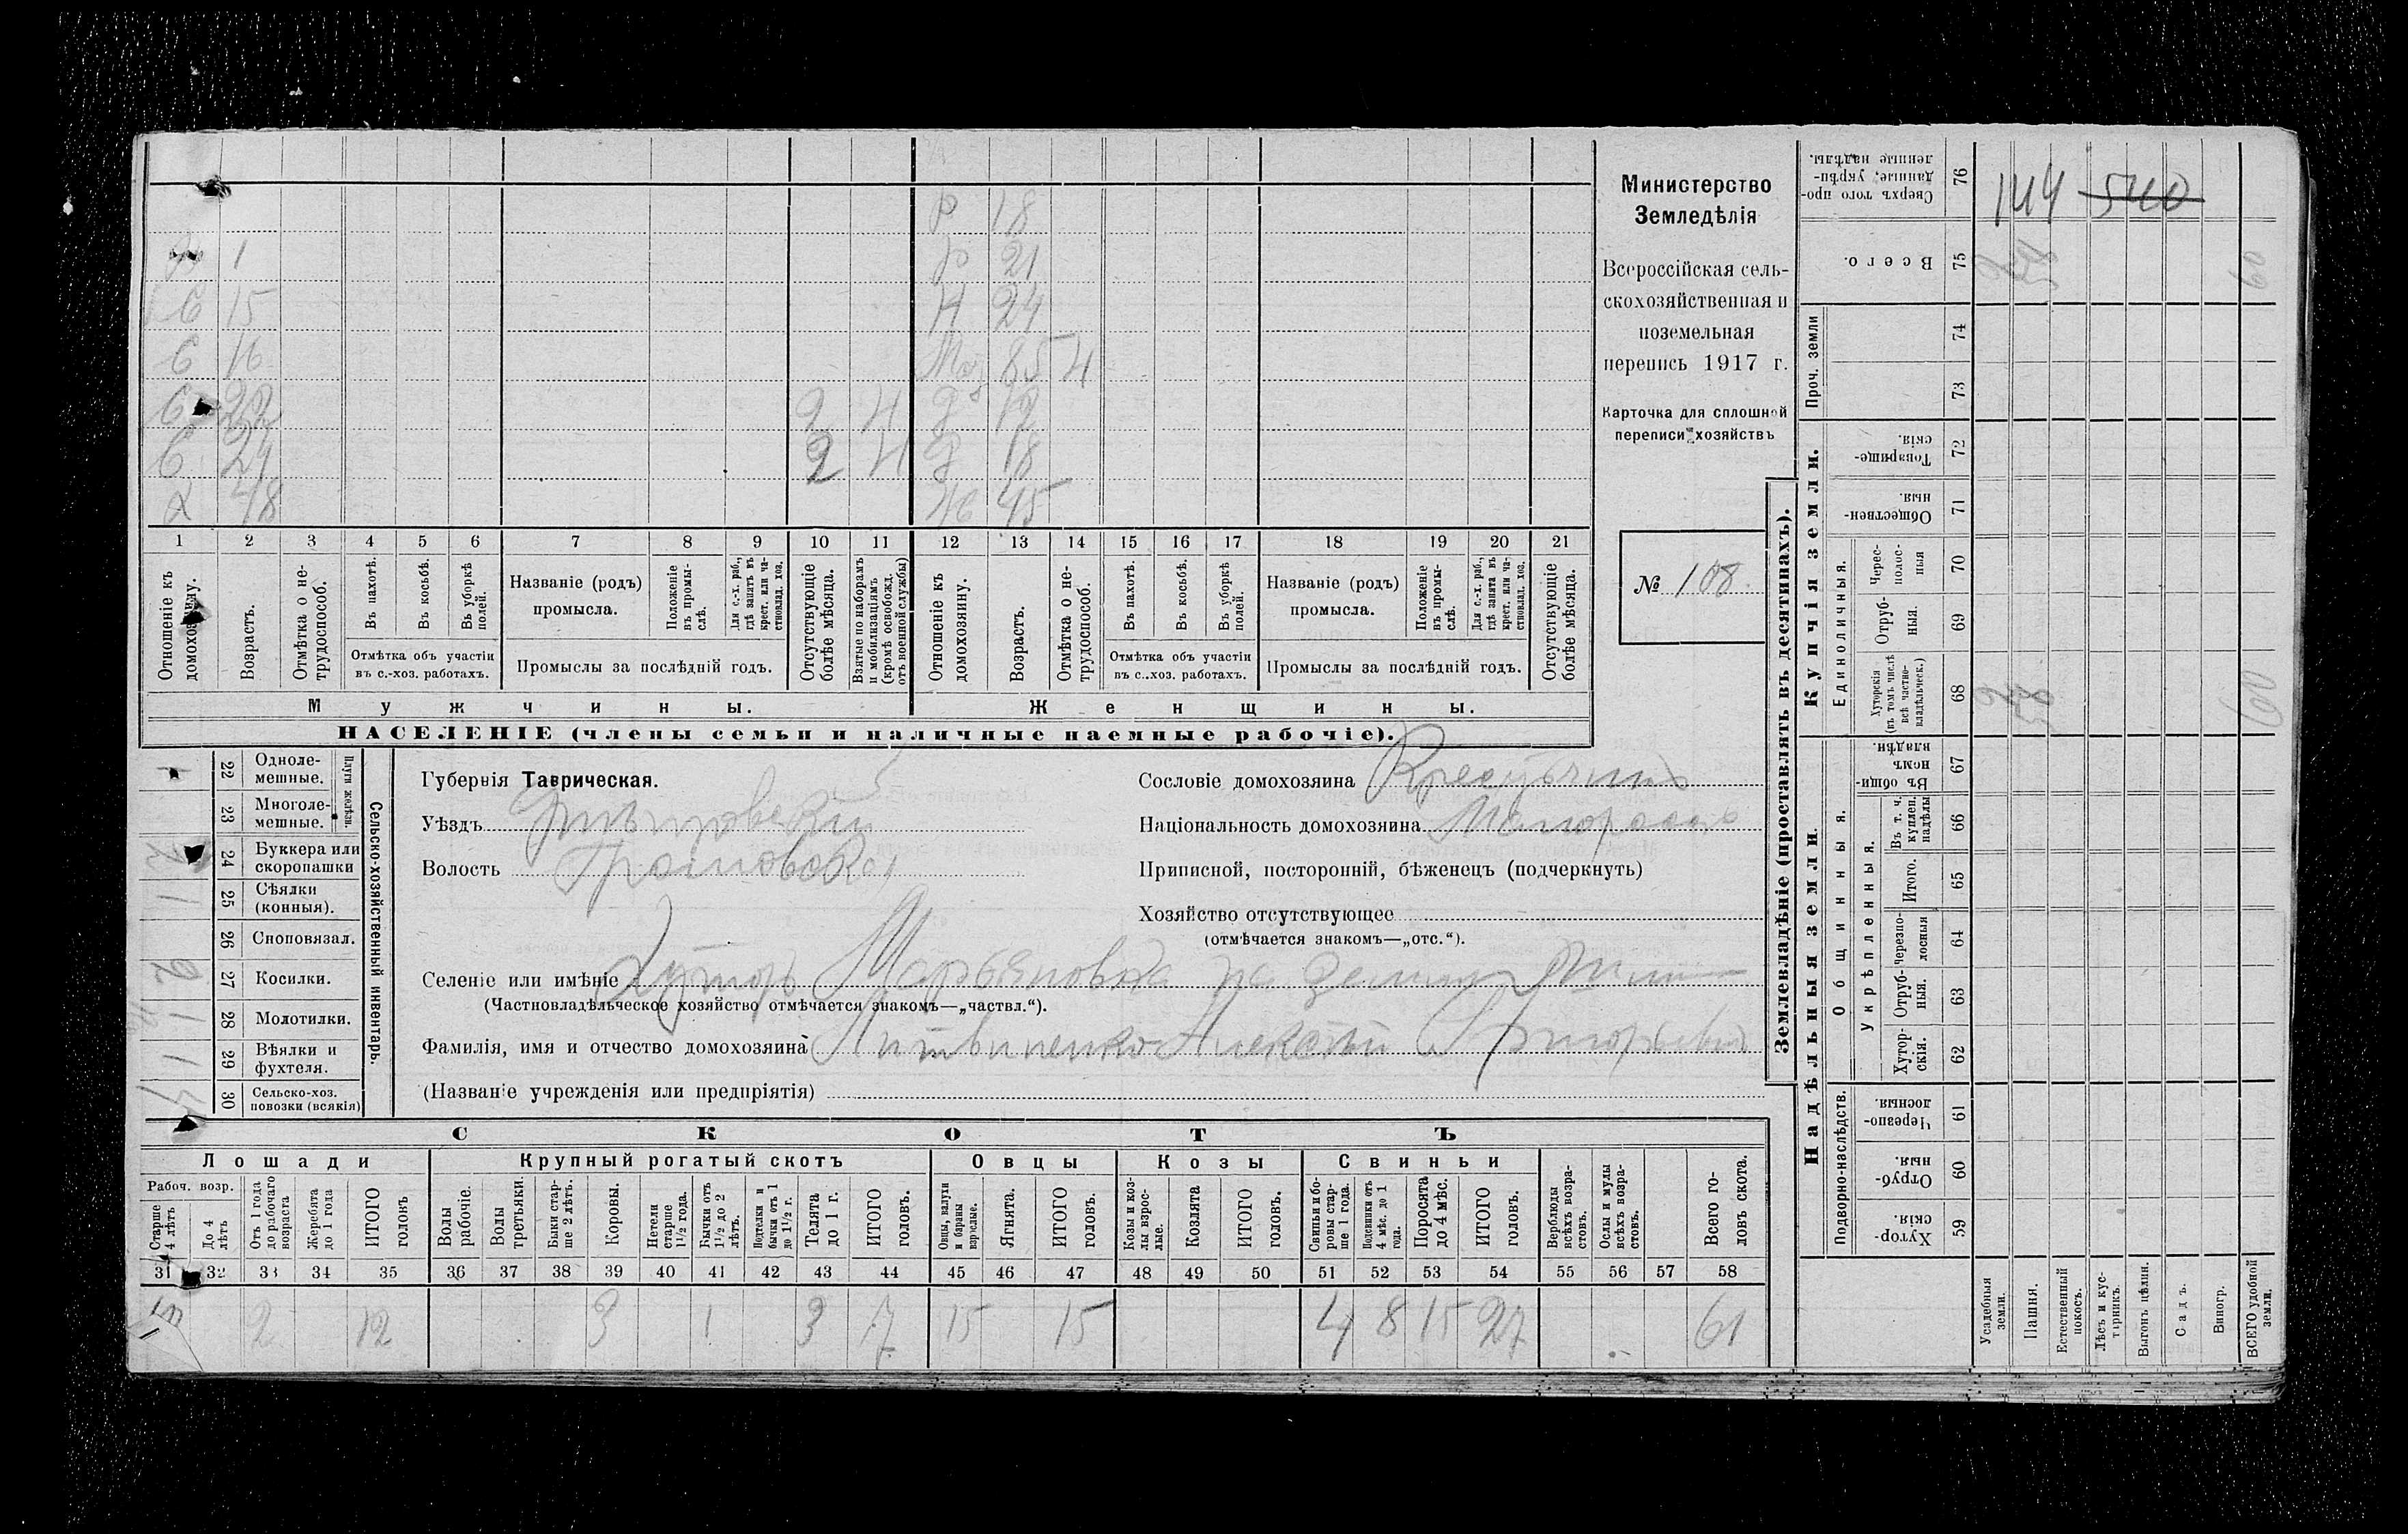 Р 18
1 Р 21
С 15 Н 24
С 16 Мат 85 Н
С 22 2 Н Д 12
С 24 2 Н Д 18
Х 48 Ж 45
1 2 3 4 5 6 7 8 9 10 11 12 13 14 15 16 17 18 19 20 21
Отношеніе къ домохозяину.
Возрастъ.
Отмѣтка о нетрудоспособ.
Въ пахотѣ.
Въ косьбѣ.
Въ уборкѣ полей.
Отмѣтка объ участіи въ с.-хоз. работахъ.
Названіе (родъ) промысла.
Положеніе въ промыслѣ.
Для с.-х. раб., гдѣ занятъ въ крест. или частновлад. хоз.
Промыслы за послѣдній годъ.
Отсутствующіе болѣе мѣсяца.
Взятые по наборамъ и мобилизаціямъ (кромѣ освобожд. отъ военной службы)
Отношеніе къ домохозяину.
Возрастъ.
Отмѣтка о нетрудоспособ.
Въ пахотѣ.
Въ косьбѣ.
Въ уборкѣ полей.
Отмѣтка объ участіи въ с..хоз. работахъ.
Названіе (родъ) промысла.
Положеніе въ промыслѣ.
Для с.-х. раб., гдѣ занята въ крест. или частновлад. хоз.
Промыслы за послѣдній годъ.
Отсутствующіе болѣе мѣсяца.
Мужчины. Женщины.
НАСЕЛЕНІЕ (члены семьи и наличные наемные рабочіе).
Министерство
Земледѣлія
Всероссійская сель-
скохозяйственная и
поземельная
перепись 1917 г.
Карточка для сплошной
переписи хозяйствъ
№ 108
Плуги желѣзн.
Сельско-хозяйственный инвентарь.
22 Однолемешные.
23 Многолемешные.
24 Буккера или скоропашки
1 25 Сѣялки (конныя).
26 Сноповязал.
2 27 Косилки.
1 28 Молотилки.
1 29 Вѣялки и фухтеля.
4 30 Сельско-хоз. повозки (всякія)
Губернія Таврическая.
Уѣздъ
Волость
Селеніе или имѣніе Хуторъ Марьяновка на земли
(Частновладѣльческое хозяйство отмѣчается знакомъ—„частвл.“).
Фамилія, имя и отчество домохозяина Литвиненко Алексѣй Григорьевъ
(Названіе учрежденія или предпріятія)
Сословіе домохозяина Крестьянинъ
Національность домохозяина Малороссъ
Приписной, посторонній, бѣженецъ (подчеркнуть)
Хозяйство отсутствующее
(отмѣчается знакомъ—„отс.“).
СКОТЪ
Лошади Крупный рогатый скотъ Овцы Козы Свиньи
Рабоч. возр.
Старше 4 лѣтъ
До 4 лѣтъ
Отъ 1 года до рабочаго возраста
Жеребята до 1 года
ИТОГО головъ
Волы рабочіе.
Волы третьяки.
Быки старше 2 лѣтъ.
Коровы.
Нетели старше 1½ года.
Бычки отъ 1½ до 2 лѣтъ.
Подтелки и бычки отъ 1 до 1½ г.
Телята до 1 г.
ИТОГО головъ.
Овцы, валухи и бараны взрослые.
Ягнята.
ИТОГО головъ.
Козы и козлы взрослые.
Козлята
ИТОГО головъ.
Свиньи и боровы старше 1 года.
Подсвинки отъ 4 мѣс. до 1 года.
Поросята до 4 мѣс.
ИТОГО головъ.
Верблюды всѣхъ возрастовъ.
Ослы и мулы всѣхъ возрастовъ.
Всего головъ скота.
31 32 33 34 35 36 37 38 39 40 41 42 43 44 45 46 47 48 49 50 51 52 53 54 55 56 57 58
2 12 3 1 3 7 15 15 4 8 15 27 61
Землевладѣніе (проставлять въ десятинахъ).
Надѣльныя земли. Купчія земли.
Проч. земли
Подворно-наслѣдств.
Общинныя.
Укрѣпленныя.
Единоличныя.
Сверхъ того проданные, укрѣпленные надѣлы. 76 144 540
Всего. 75 60
74
73
Товарищескія. 72
Общественныя. 71
Чересполосныя 70
Отрубныя. 69
Хуторскія (въ томъ числѣ всѣ частновладѣльческ.) 68 60
Въ общинномъ владѣн. 67
Въ т. ч. куплен. надѣлы 66
Итого. 65
Черезполосныя 64
Отрубныя. 63
Хуторскія. 62
Черезполосныя. 61
Отрубныя. 60
Хуторскія. 59
Усадебныя земли.
Пашня.
Естественный покосъ.
Лѣсъ и кустарникъ.
Выгонъ цѣлин.
Садъ.
Виногр.
ВСЕГО удобной земли.